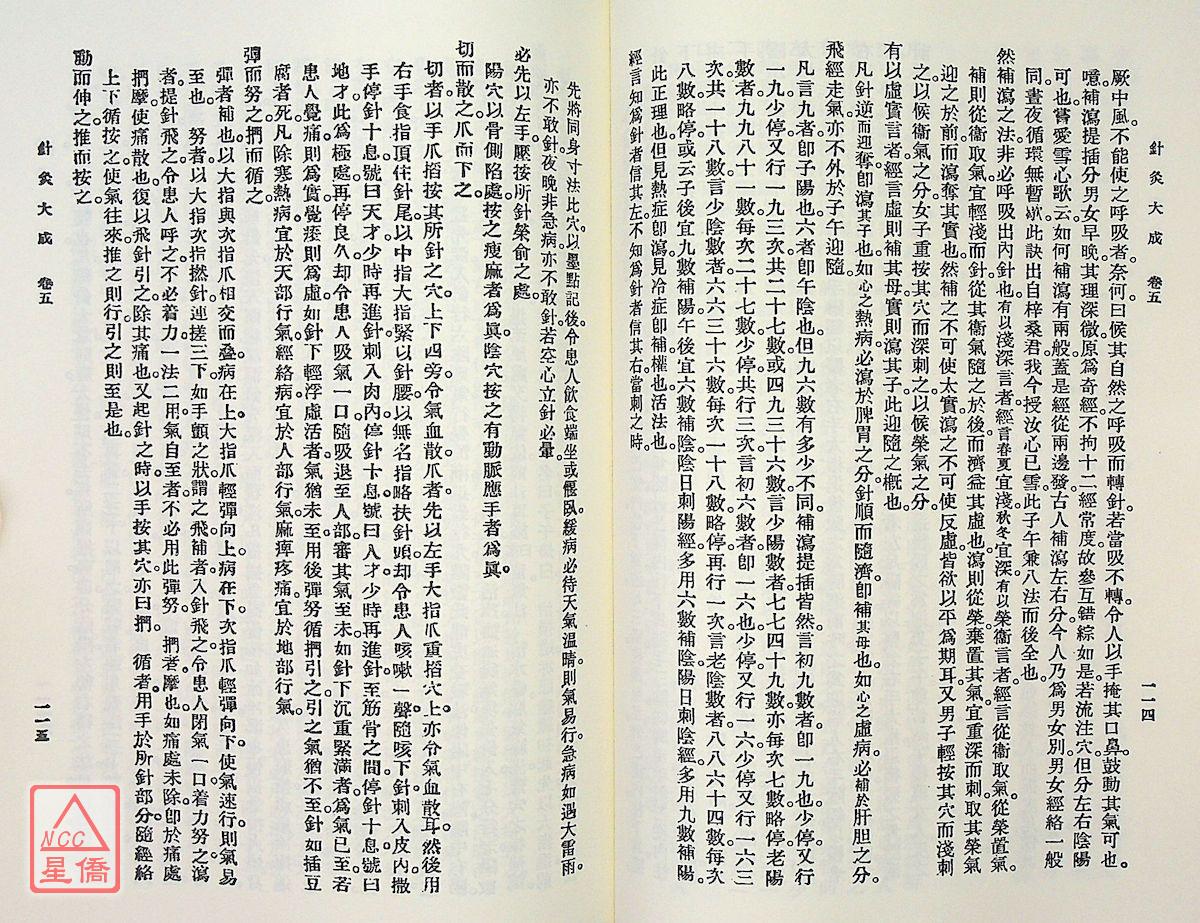 針灸大成 卷五
一一四
厥中風。不能使之呼吸者。奈何。曰候其自然之呼吸而轉針。若當吸不轉。令人以手掩其口鼻。鼓動其氣可也。
噫。補瀉提插。分男女早晚。其理深微。原爲奇經。不拘十二經常度。故參互錯綜如是。若流注穴。但分左右陰陽
可也。嘗愛雪心歌云。如何補瀉有兩般。蓋是經從兩邊發。古人補瀉左右分。今人乃爲男女別。男女經絡一般
同。晝夜循環無暫歇。此訣出自梓桑君。我今授汝心已雪。此子午兼八法而後全也。
然補瀉之法。非必呼吸出內針也。有以淺深言者。經言春夏宜淺。秋冬宜深。有以榮衞言者。經言從衞取氣。從榮置氣。
補則從衞取氣。宜輕淺而針。從其衞氣隨之於後。而濟益其虛也。瀉則從榮棄置其氣。宜重深而刺。取其榮氣
迎之於前。而瀉奪其實也。然補之不可使太實。瀉之不可使反虛。皆欲以平爲期耳。又男子輕按其穴而淺刺
之。以候衞氣之分。女子重按其穴而深刺之。以候榮氣之分。
有以虛實言者。經言虛則補其母。實則瀉其子。此迎隨之槪也。
凡針逆而迎奪。卽瀉其子也。如心之熱病。必瀉於脾胃之分。針順而隨濟。卽補其母也。如心之虛病。必補於肝胆之分。
飛經走氣。亦不外於子午迎隨。
凡言九者。卽子陽也。六者。卽午陰也。但九六數有多少不同。補瀉提插皆然。言初九數者。卽一九也。少停又行
一九。少停又行一九。三次共二十七數。或四九三十六數。言少陽數者。七七四十九數。亦每次七數略停。老陽
數者。九九八十一數。每次二十七數少停。共行三次。言初六數者。卽一六也。少停又行一六。少停又行一六。三
次共一十八數。言少陰數者。六六三十六數。每次一十八數略停。再行一次。言老陰數者。八八六十四數。每次
八數略停。或云。子後宜九數補陽。午後宜六數補陰。陰日刺陽經。多用六數補陰。陽日刺陰經。多用九數補陽。
此正理也。但見熱症卽瀉。見冷症卽補。權也。活法也。
經言知爲針者信其左。不知爲針者信其右。當刺之時。
先將同身寸法比穴。以墨點記。後令患人飲食端坐。或偃臥。緩病必待天氣溫晴。則氣易行。急病如遇大雷雨。
亦不敢針。夜晚非急病。亦不敢針。若空心立針必暈。
必先以左手壓按所針榮俞之處。
陽穴以骨側陷處。按之痠麻者爲眞。陰穴按之有動脈應手者爲眞。
切而散之。爪而下之。
切者。以手爪掐按其所針之穴。上下四旁。令氣血散。爪者。先以左手大指爪重掐穴上。亦令氣血散耳。然後用
右手食指頂住針尾。以中指大指緊以針腰。以無名指略扶針頭。却令患人咳嗽一聲。隨咳下針。刺入皮內。撒
手停針十息。號曰天才。少時再進針刺入肉內。停針十息。號曰人才。少時再進針至筋骨之間。停針十息。號曰
地才。此爲極處。再停良久。却令患人吸氣一口。隨吸退至人部。審其氣至未。如針下沉重緊滿者。爲氣已至。若
患人覺痛則爲實。覺痠則爲虛。如針下輕浮虛活者。氣猶未至。用後彈努循捫引之。引之氣猶不至。針如插豆
腐者死。凡除寒熱病。宜於天部行氣。經絡病。宜於人部行氣。麻痺疼痛。宜於地部行氣。
彈而努之。捫而循之。
彈者補也。以大指與次指爪相交而叠。病在上。大指爪輕彈向上。病在下。次指爪輕彈向下。使氣速行。則氣易
至也。 努者。以大指次指撚針。連搓三下。如手顫之狀。謂之飛。補者入針飛之。令患人閉氣一口。着力努之。瀉
者提針飛之。令患人呼之。不必着力。一法二用。氣自至者。不必用此彈努。 捫者。摩也。如痛處未除。卽於痛處
捫摩。使痛散也。復以飛針引之。除其痛也。又起針之時。以手按其穴。亦曰捫。 循者。用手於所針部分。隨經絡
上下循按之。使氣往來。推之則行。引之則至是也。
動而伸之。推而按之。
針灸大成 卷五
一一五
NCC
星僑